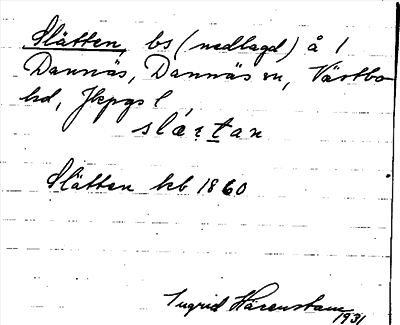 Slätten, bs (nedlagd) å 1
Dannäs, Dannäs sn, Västbo
hd, Jkpgs l
Slätten kb 1860
Ingrid Härenstam
1931